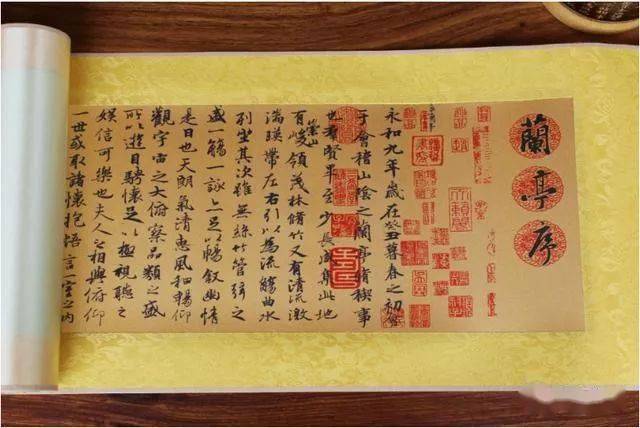 蘭亭序
永和九年歲在癸丑暮春之初會
于會稽山陰之蘭亭脩稧事
也羣賢畢至少長咸集此地
有崇山峻領茂林脩竹又有清流激
湍暎帶左右引以為流觴曲水
列坐其次雖無絲竹管弦之
盛一觴一詠亦足以暢叙幽情
是日也天朗氣清惠風和暢仰
觀宇宙之大俯察品類之盛
所以遊目騁懷足以極視聽之
娛信可樂也夫人之相與俯仰
一世或取諸懷抱悟言一室之內